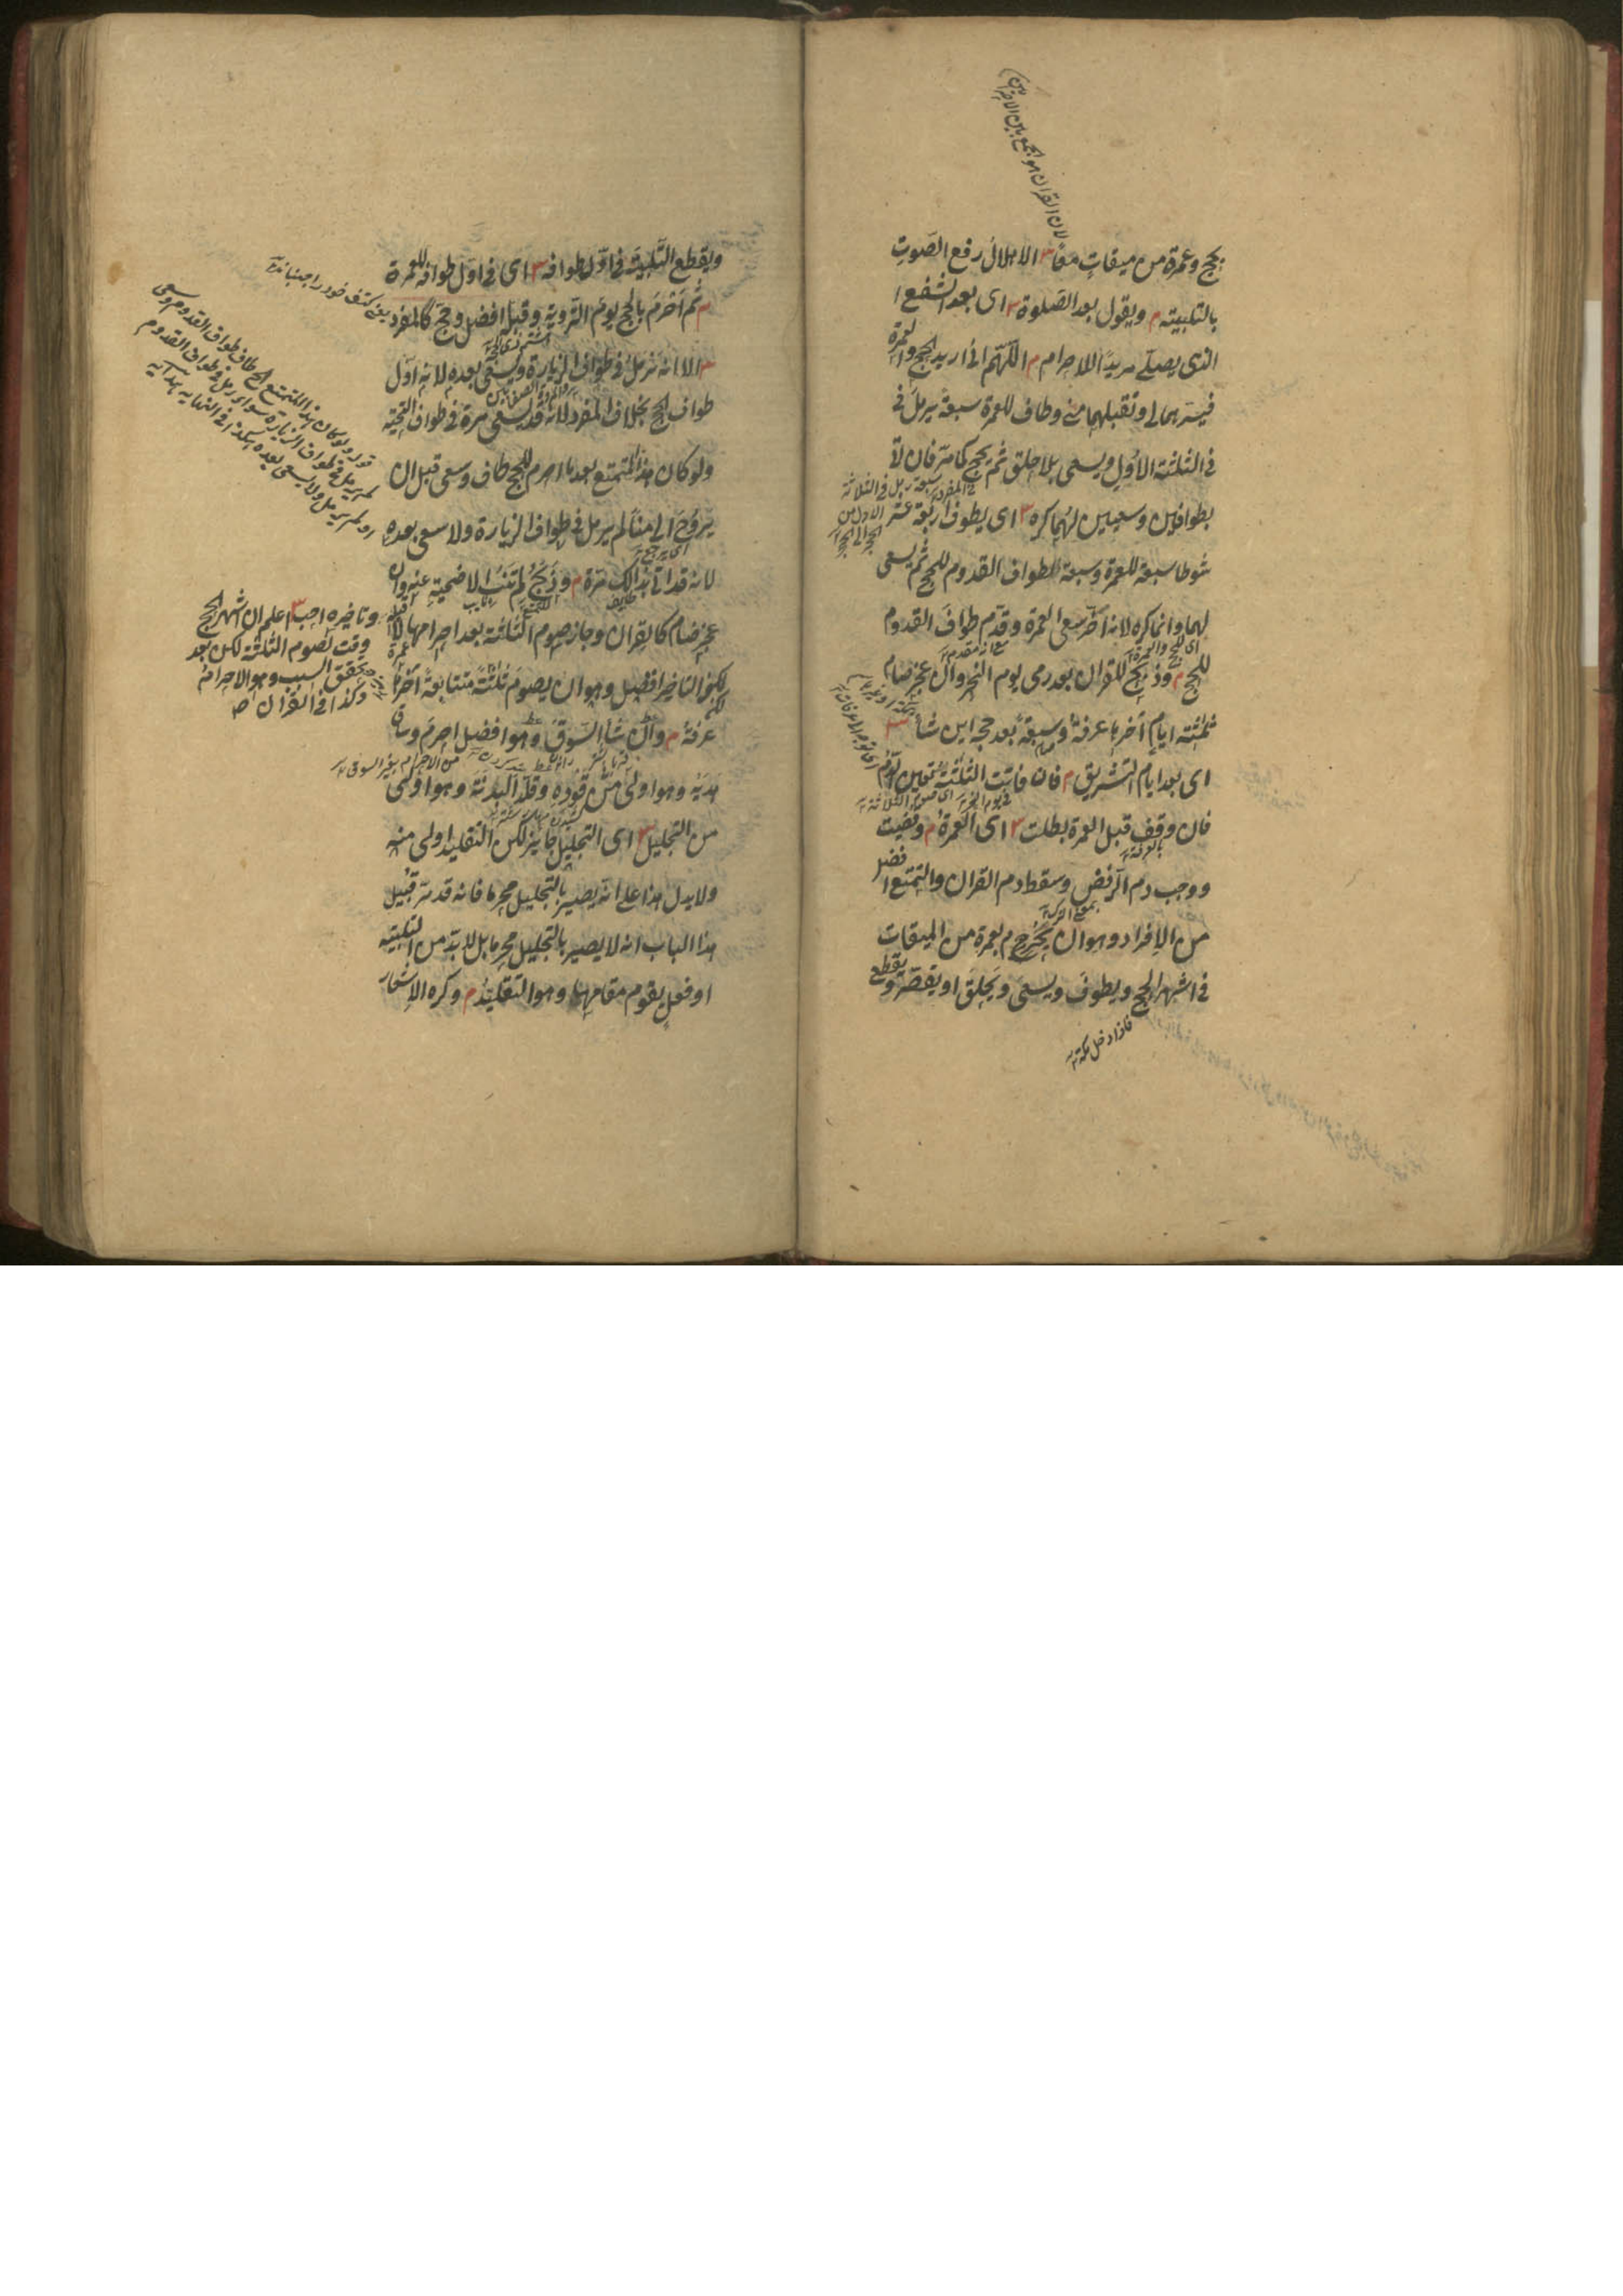 لان القران هو الجمع بين الاحرامين
بحج وعمرة من ميقات معا ش الاهلال رفع الصوت
بالتلبيته م ويقول بعد الصلوة ش اى بعد الشفع
الذى يصلے مريدًا للاحرام م اللهم انى اريد الحج والعمرة
فيسرهما لى وتقبلهما منى وطاف للعمرة سبعة يرمل فى
فى الثلثة الاُول ويسعى بلا حلق ثم يحج كما مر فان لا
بطوافين وسعيين لهما كره ش اى يطوف اربعة عشر
شوطا سبعة للعمرة وسبعة لطواف القدوم للحج ثم يسعى
لهما وانما كره لانه اخر سعى العمرة وقدم طواف القدوم
للحج م وذبح للقران بعد رمى يوم النحر وان عجز صام
ثلثته ايام آخرها عرفة وسبعة بعد حجه اين شأ ش
اى بعد ايام التشريق م فان فاتت الثلثة تعين الدم
فان وقف قبل العمرة بطلت ش اى العمرة م وقضيت
ووجب دم الرفض وسقط دم القران والتمتع افضل
من الافراد وهو ان يحرم بعمرة من الميقات
فى اشهر الحج ويطوف ويسعى ويحلق او يقصر ويقطع
فاذا دخل مكة
ويقطع التلبية فى اول طوافه ش اى فى اول طوافه للعمرة
م ثم احرم بالحج يوم التروية وقبله افضل وحج كالمفرد
ش الا انه يرمل فى طواف الزيارة ويسعى بعده لانه اول
طواف للحج بخلاف المفرد لانه قد يسعى مرة فى طواف التحية
ولو كان هذا المتمتع بعد ما احرم للحج طاف وسعى قبل ان
يروح الى منا لم يرمل فى طواف الزيارة ولا سعى بعده
لانه قد اتى بذالك مرة م وذبح ولم تنب الاضحية عنه وان
عجز صام كالقران وجاز صوم الثلثة بعد احرامها لا قبله
وتاخيره احب ش اعلم ان اشهر الحج
وقت لصوم الثلثة لكن بعد
تحقق السبب وهو الاحرام
وكذا فى القران
لكن التاخير افضل وهو ان يصوم ثلثة متتابعة آخرها
عرفة م وان شأ السوق وهو افضل احرم وساق
هديه وهو اولى من قوده وقلد البدنة وهو اولى
من التجليل ش اى التجليل جايز لكن التقليد اولى منه
ولا يدل هذا على انه يصير بالتجليل محرما فانه قد مر قبيل
هذا الباب انه لا يصير بالتجليل محرما بل لا بد من التلبيته
او فعل يقوم مقامها وهو التقليد م وكره الاشعار